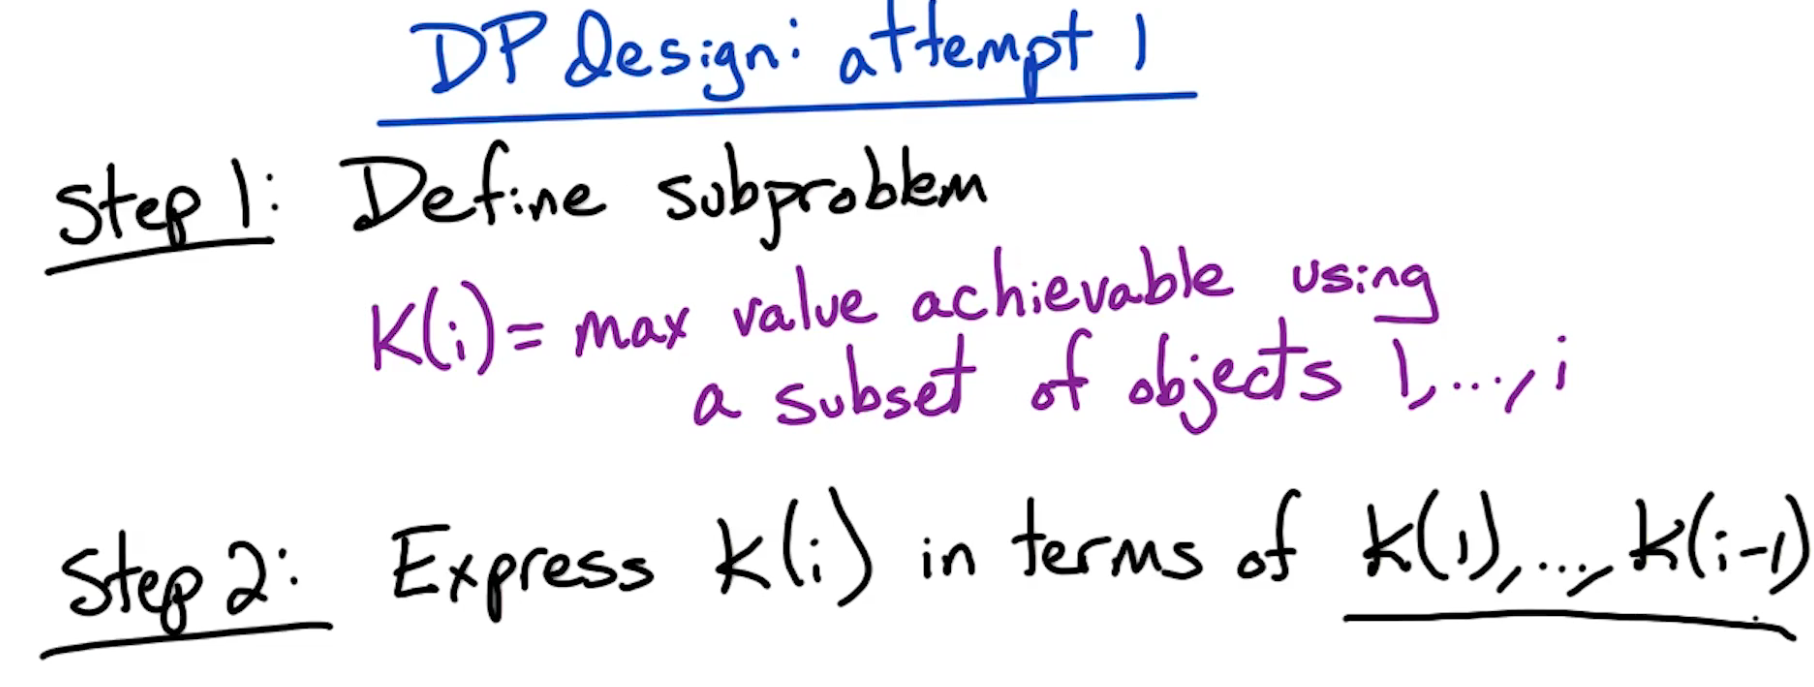 DP design: attempt 1
Step 1: Define subproblem
K(i) = max value achievable using
a subset of objects 1, ..., i
Step 2: Express K(i) in terms of K(1), ..., K(i-1)